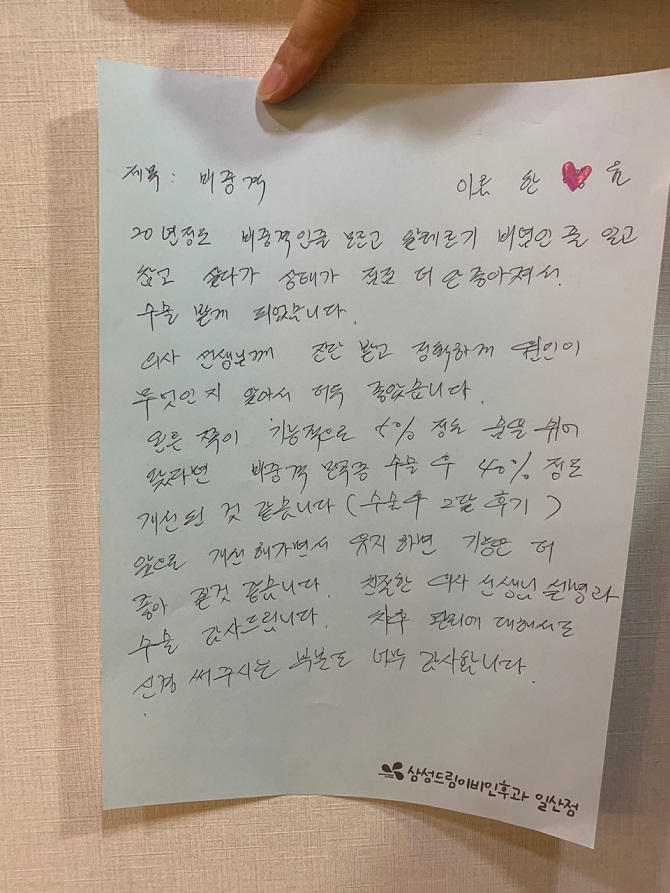 제목 : 비중격 이름 한 윤
20년정도 비중격인줄 모르고 알레르기 비염인 줄 알고
참고 살다가 상태가 점점 더 안 좋아져서
수술 받게 되었습니다.
의사 선생님께 진단 받고 정확하게 원인이
무엇인지 알아서 너무 좋았습니다.
오른 쪽이 기능적으로 5% 정도 숨을 쉬어
왔다면 비중격 만곡증 수술 후 40% 정도
개선된 것 같습니다 (수술후 2달 후기)
앞으로 개선해가면서 유지하면 기능은 더
좋아 질것 같습니다. 친절한 의사 선생님 설명과
수술 감사드립니다. 차후 관리에 대해서도
신경 써주시는 부분도 너무 감사합니다.
삼성드림이비인후과 일산점